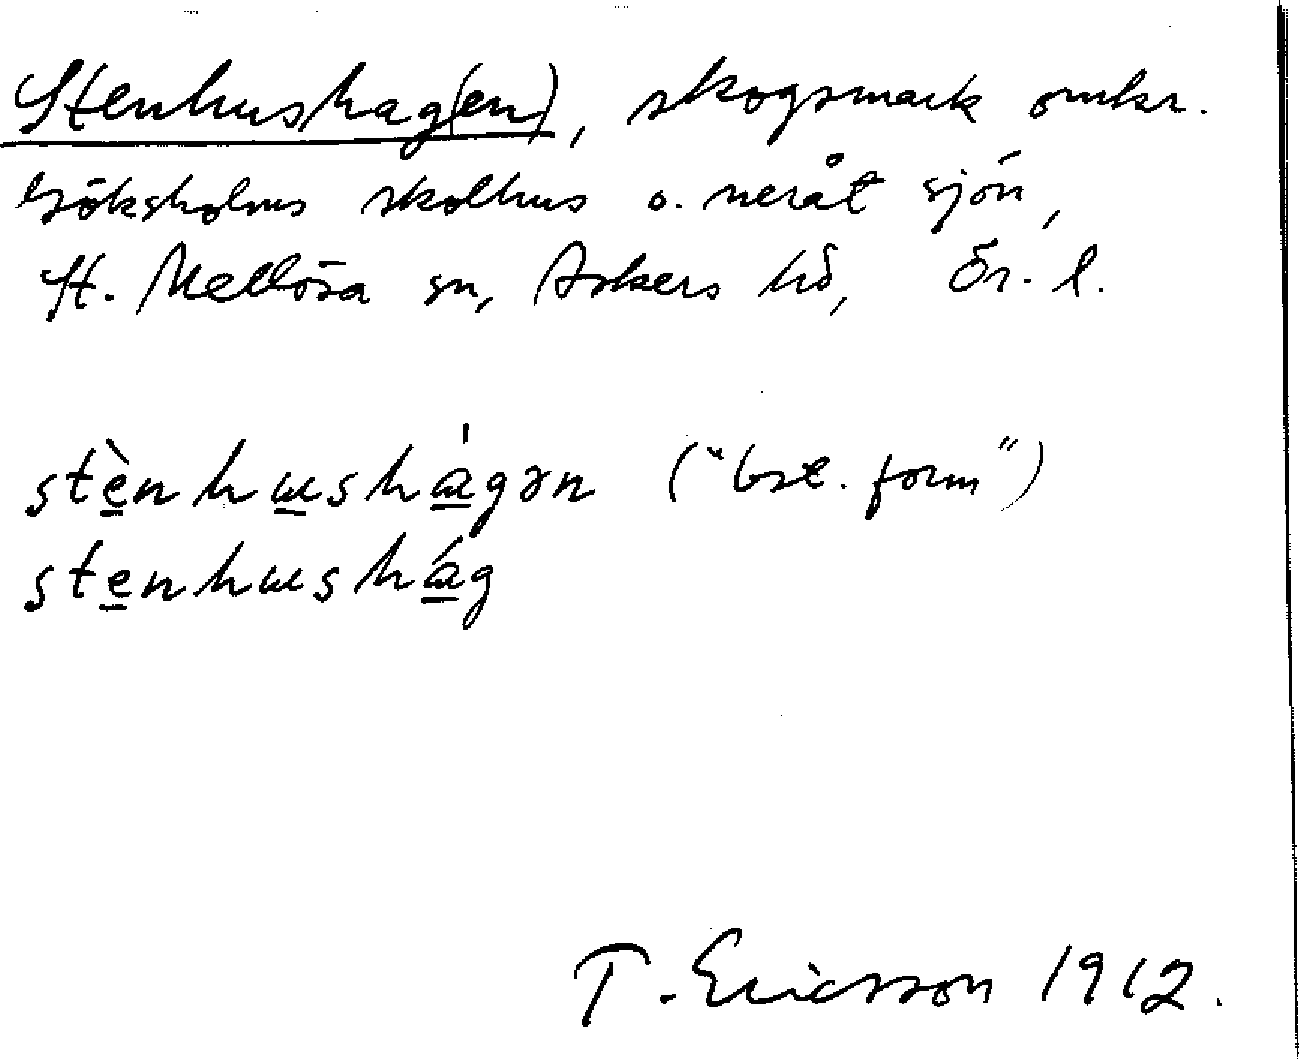 Stenhushag(en), skogsmark omkr.
Göksholms skolhus o. neråt sjön,
St. Mellösa sn, Askers hd, Ör. l.
stènhushágən ("bst. form")
stenhushág
T. Ericsson 1912.